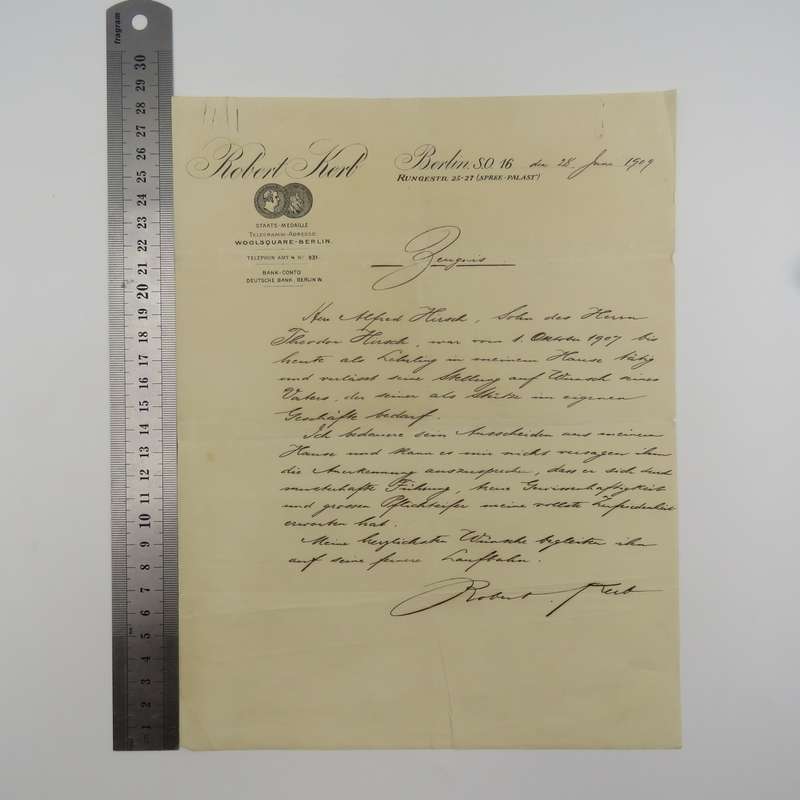 fragram
Robert Kerb
Berlin, S.O. 16 den 28. Juni 1909
RUNGESTR. 25-27 (SPREE-PALAST)
STAATS-MEDAILLE
TELEGRAMM-ADRESSE:
WOOLSQUARE-BERLIN.
TELEPHON AMT 4 Nº 831
BANK-CONTO
DEUTSCHE BANK, BERLIN W.
Zeugnis.
Herr Alfred Hirsch, Sohn des Herrn
Theodor Hirsch, war vom 1. Oktober 1907 bis
heute als Lehrling in meinem Hause tätig
und verlässt seine Stellung auf Wunsch seines
Vaters, der seiner als Stütze im eigenen
Geschäfte bedarf.
Ich bedauere sein Ausscheiden aus meinem
Hause und kann es mir nicht versagen ihm
die Anerkennung auszusprechen, dass er sich durch
musterhafte Führung, treue Gewissenhaftigkeit
und grossen Pflichteifer meine vollste Zufriedenheit
erworben hat.
Meine herzlichsten Wünsche begleiten ihn
auf seine fernere Laufbahn.
Robert Kerb
30
29
28
27
26
25
24
23
22
21
20
19
18
17
16
15
14
13
12
11
10
9
8
7
6
5
4
3
2
1